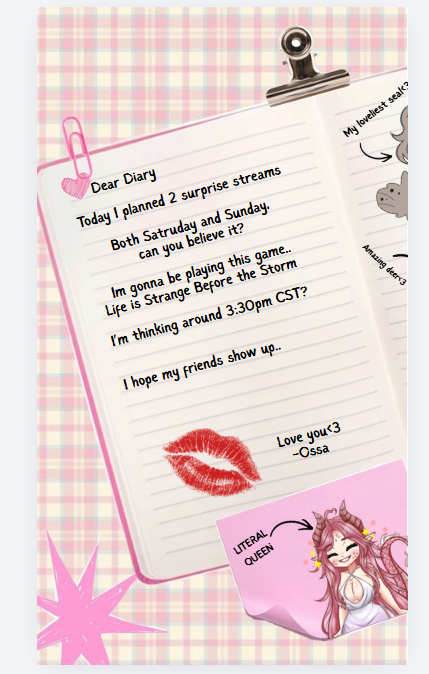 Dear Diary
Today I planned 2 surprise streams
Both Satruday and Sunday.
can you believe it?
Im gonna be playing this game..
Life is Strange Before the Storm
I'm thinking around 3:30pm CST?
I hope my friends show up..
Love you<3
-Ossa
My loveliest seal<3
Amazing deer<3
LITERAL
QUEEN